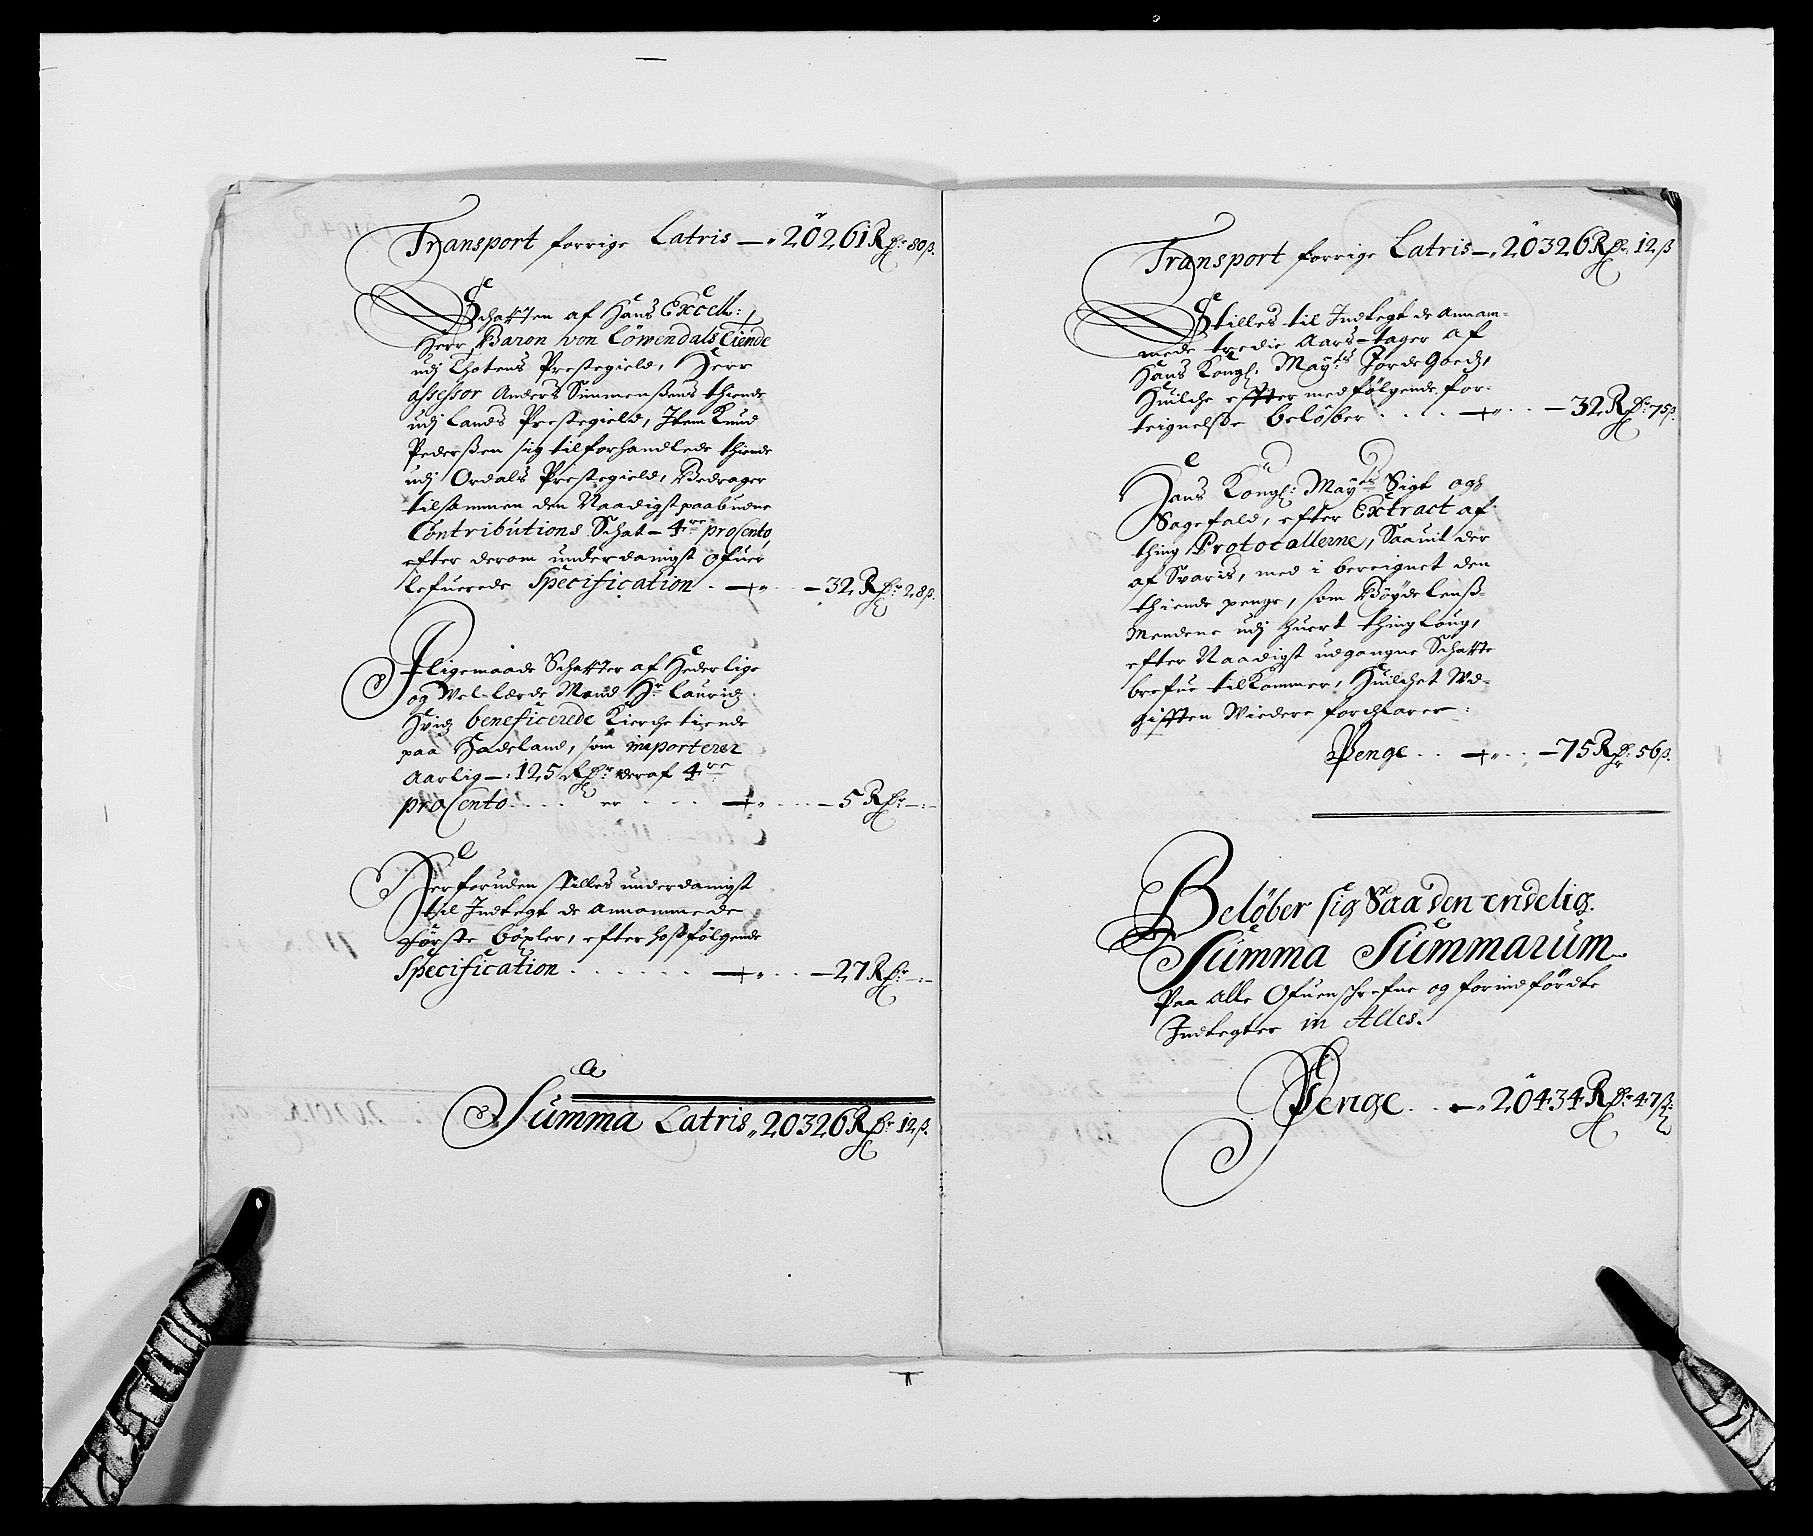 Transport forrige Latris — 20261 Rdr 80 ß.
Schatten af Hans Excell:
Herr Baron von Löwendals tiende
udj Thotens Prestegield, Herr
assessor Anders Simmensßens thiende
udj Lands Prestegield, Item Knud
Pederßen sig tilforhandlede thiende
udj Ordals Prestegield, Bedrager
tilsammen den Naadigst paabudne
Contributions Schat - 4re proCento,
efter derom underdanigst ofuer
lefuerede Specification . — 32 Rdr 28 ß.
Iligemaade Schatter af Hederlige
og Wel-lærde Mand Hr Lauridz
Hvidz beneficerede Kierche tiende
paa Hadeland, som importerer
Aarlig —: 125 Rdr deraf 4re
proCento . . . er . . . — 5 Rdr —:—
Herforuden stilles underdanigst
thil Indtegt de Annammede
förste böxler, efter hosfölgende
Specification . . . . . . — 27 Rdr —:—
Summa Latris „ 20326 Rdr 12 ß.
Transport forrige Latris — 20326 Rdr 12 ß
Stilles til Indtegt de Annam-
mede tredie Aars-tager af
Hans Kongl: Mayts Jorde Goedz,
Huilche effter medfölgende for-
teignelse belöber . . . . — 32 Rdr 75 ß.
Hans Kongl: Mayts Sigt og
Sagefald, efter Extract af
thing Protocallerne, Saauit der
af Svaris, med i bereignet den
thiende penge, som Böyde lenß-
Mendene udj huert thinglaug,
efter Naadigst udgangne Schatte
brefue tilkommer, Huilchet Ud-
gifften Widere forchlarer:
Penge . . — 75 Rdr 56 ß.
Belöber sig Saa den endelig
Summa Summarum
Paa Alle Ofuenschrefne og forindfördte
Indtegter in Alles.
Penge . . — 20434 Rdr 47 ß